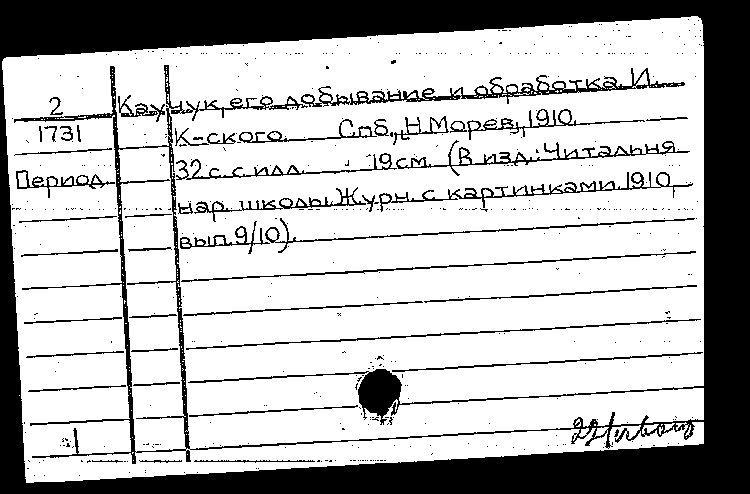 2 Каучук, его добывание и обработка. И.
1731 К-ского. Спб., Н. Морев, 1910.
32 с. с илл. 19 см. (В изд.: Читальня
Период. нар. школы. Журн. с картинками. 1910,
вып. 9/10).
1